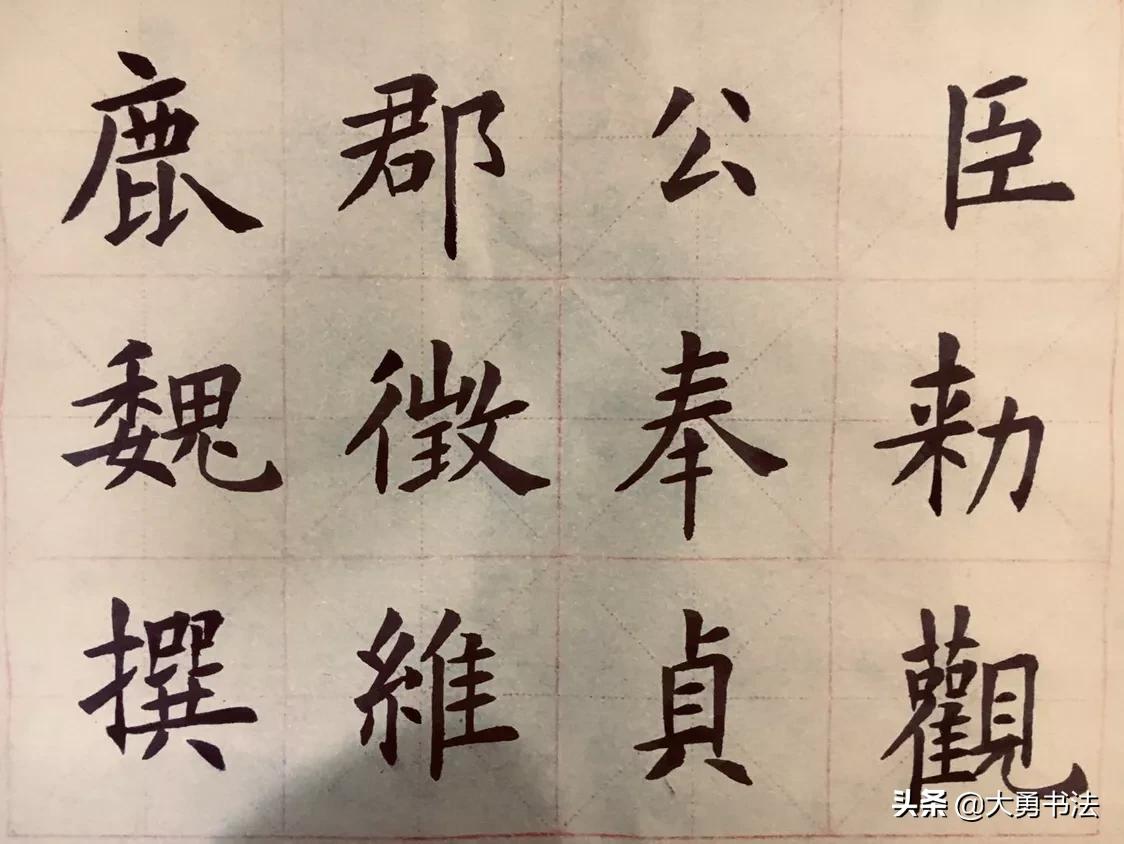 鹿郡公臣
魏徵奉勑
撰維貞觀
头条 @大勇书法